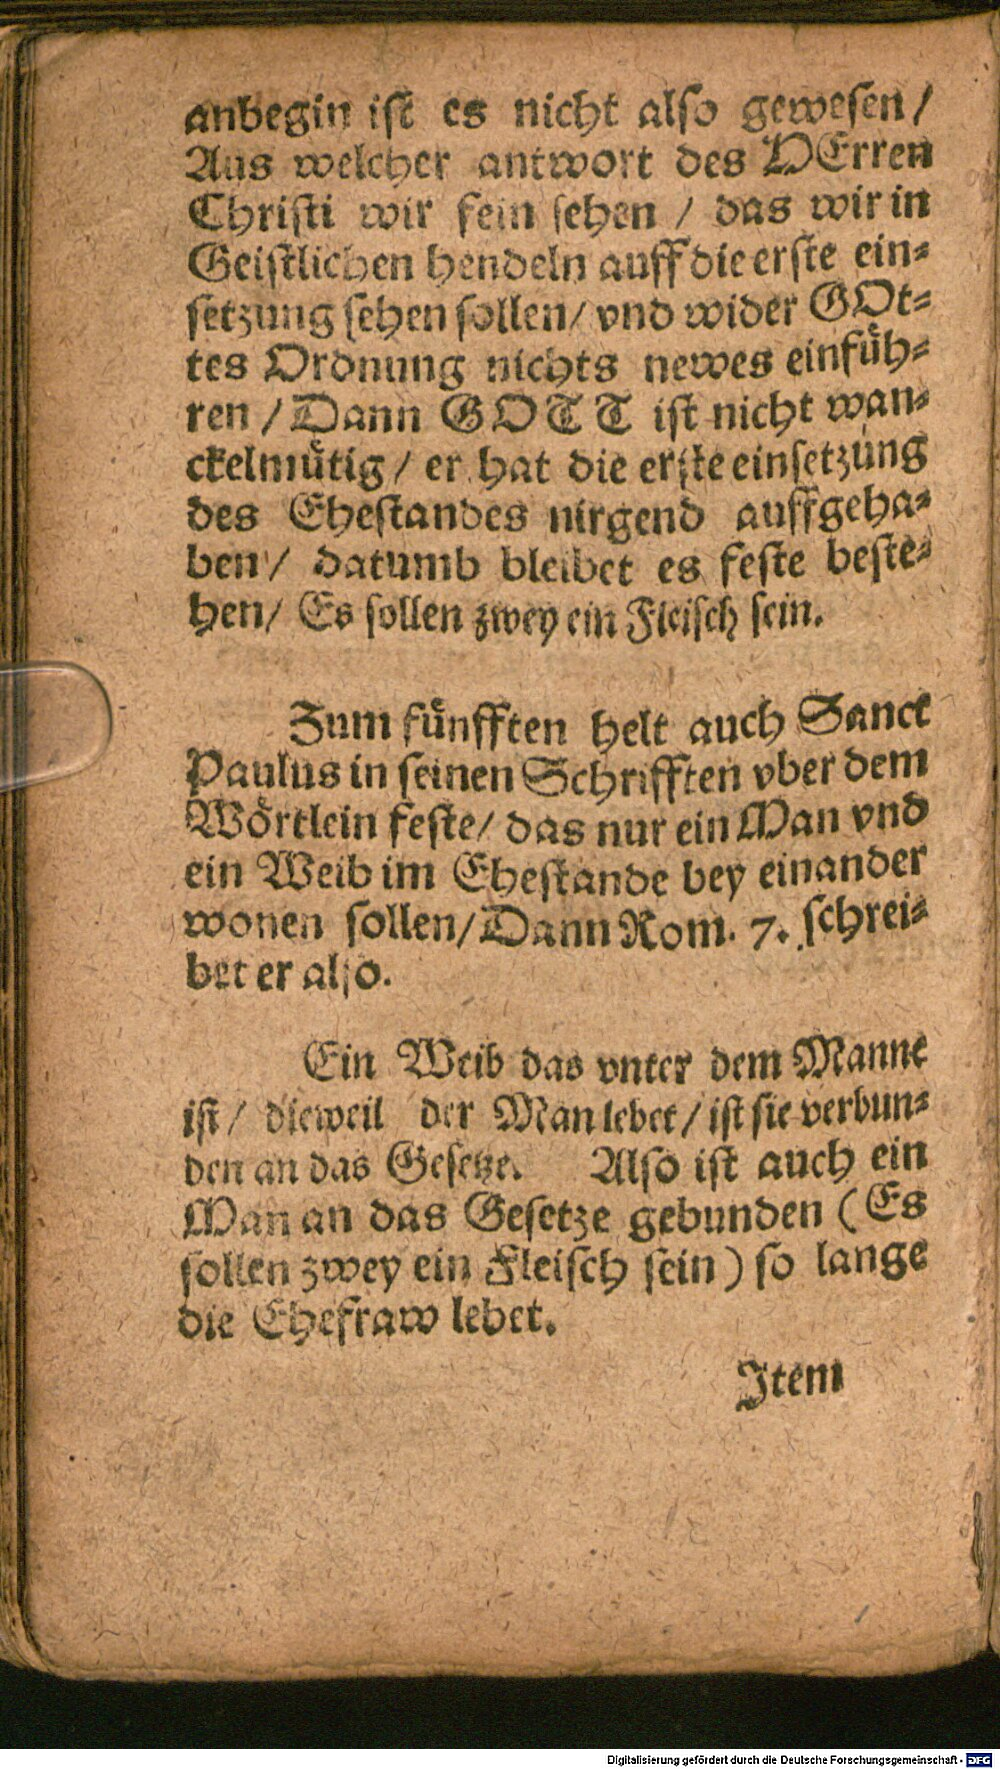 anbegin ist es nicht also gewesen/
Aus welcher antwort des HErren
Christi wir fein sehen / das wir in
Geistlichen hendeln auff die erste ein⸗
setzung sehen sollen/ vnd wider GOt⸗
tes Ordnung nichts newes einfuͤh⸗
ren / Dann GOTT ist nicht wan⸗
ckelmuͤtig / er hat die erste einsetzung
des Ehestandes nirgend auffgeha⸗
ben / datumb bleibet es feste beste⸗
hen/ Es sollen zwey ein Fleisch sein.
Zum fuͤnfften helt auch Sanct
Paulus in seinen Schrifften vber dem
Woͤrtlein feste/ das nur ein Man vnd
ein Weib im Ehestande bey einander
wonen sollen/ Dann Rom. 7. schrei⸗
bet er also.
Ein Weib das vnter dem Manne
ist / dieweil der Man lebet / ist sie verbun⸗
den an das Gesetze. Also ist auch ein
Man an das Gesetze gebunden ( Es
sollen zwey ein Fleisch sein ) so lange
die Ehefraw lebet.
Item
Digitalisierung gefördert durch die Deutsche Forschungsgemeinschaft - DFG